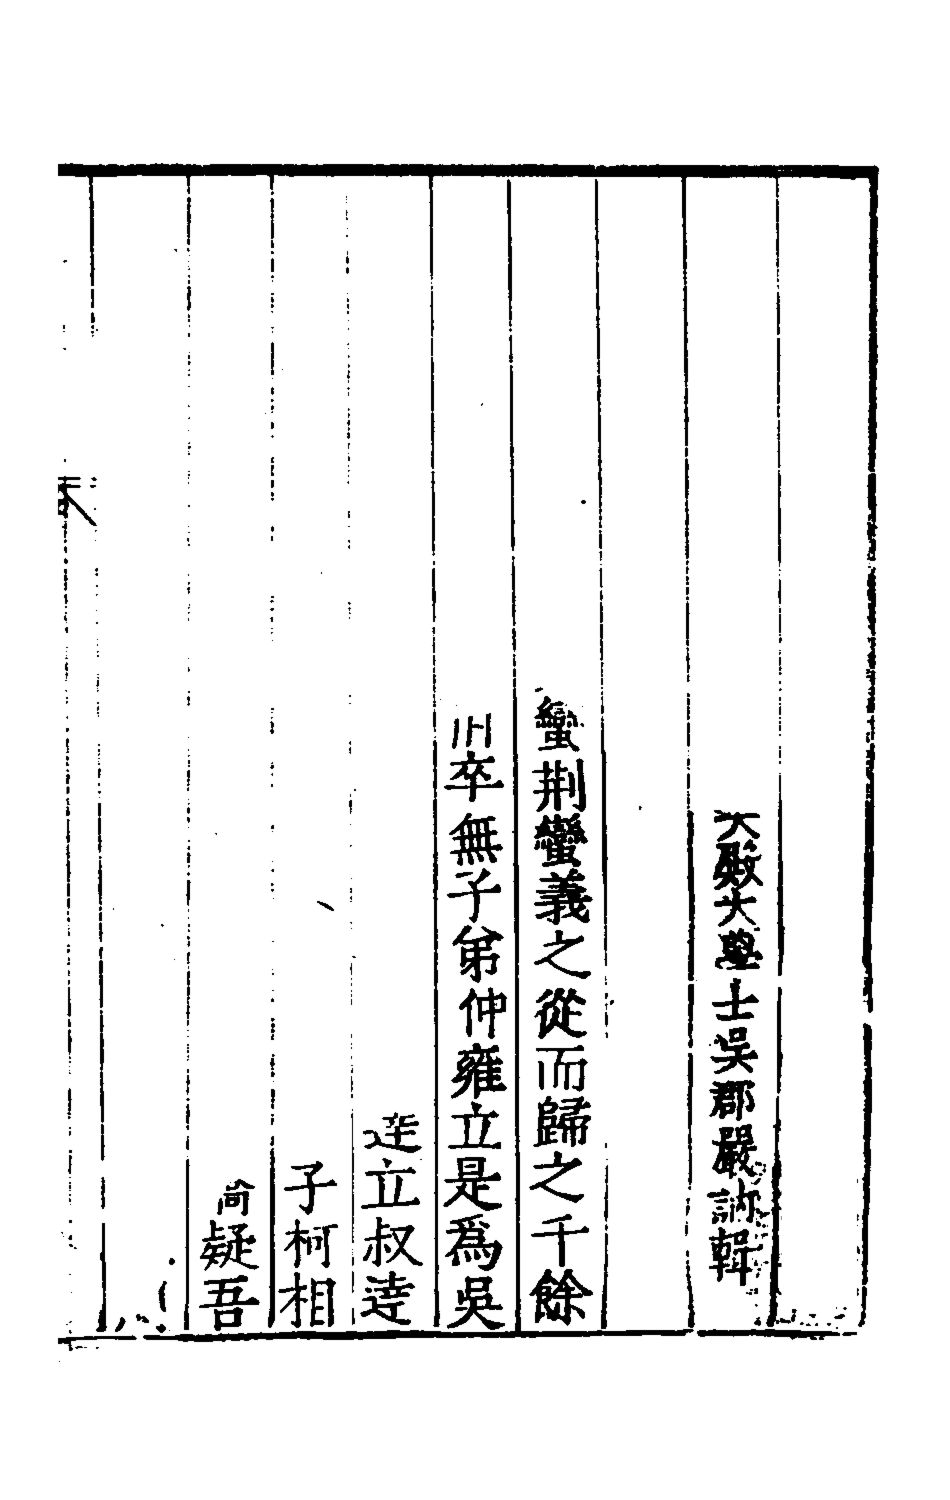 大殿大學士吳郡嚴訥輯
蠻荆蠻義之從而歸之千餘
卒無子弟仲雍立是爲吳
逹立叔逹
子柯相
疑吾